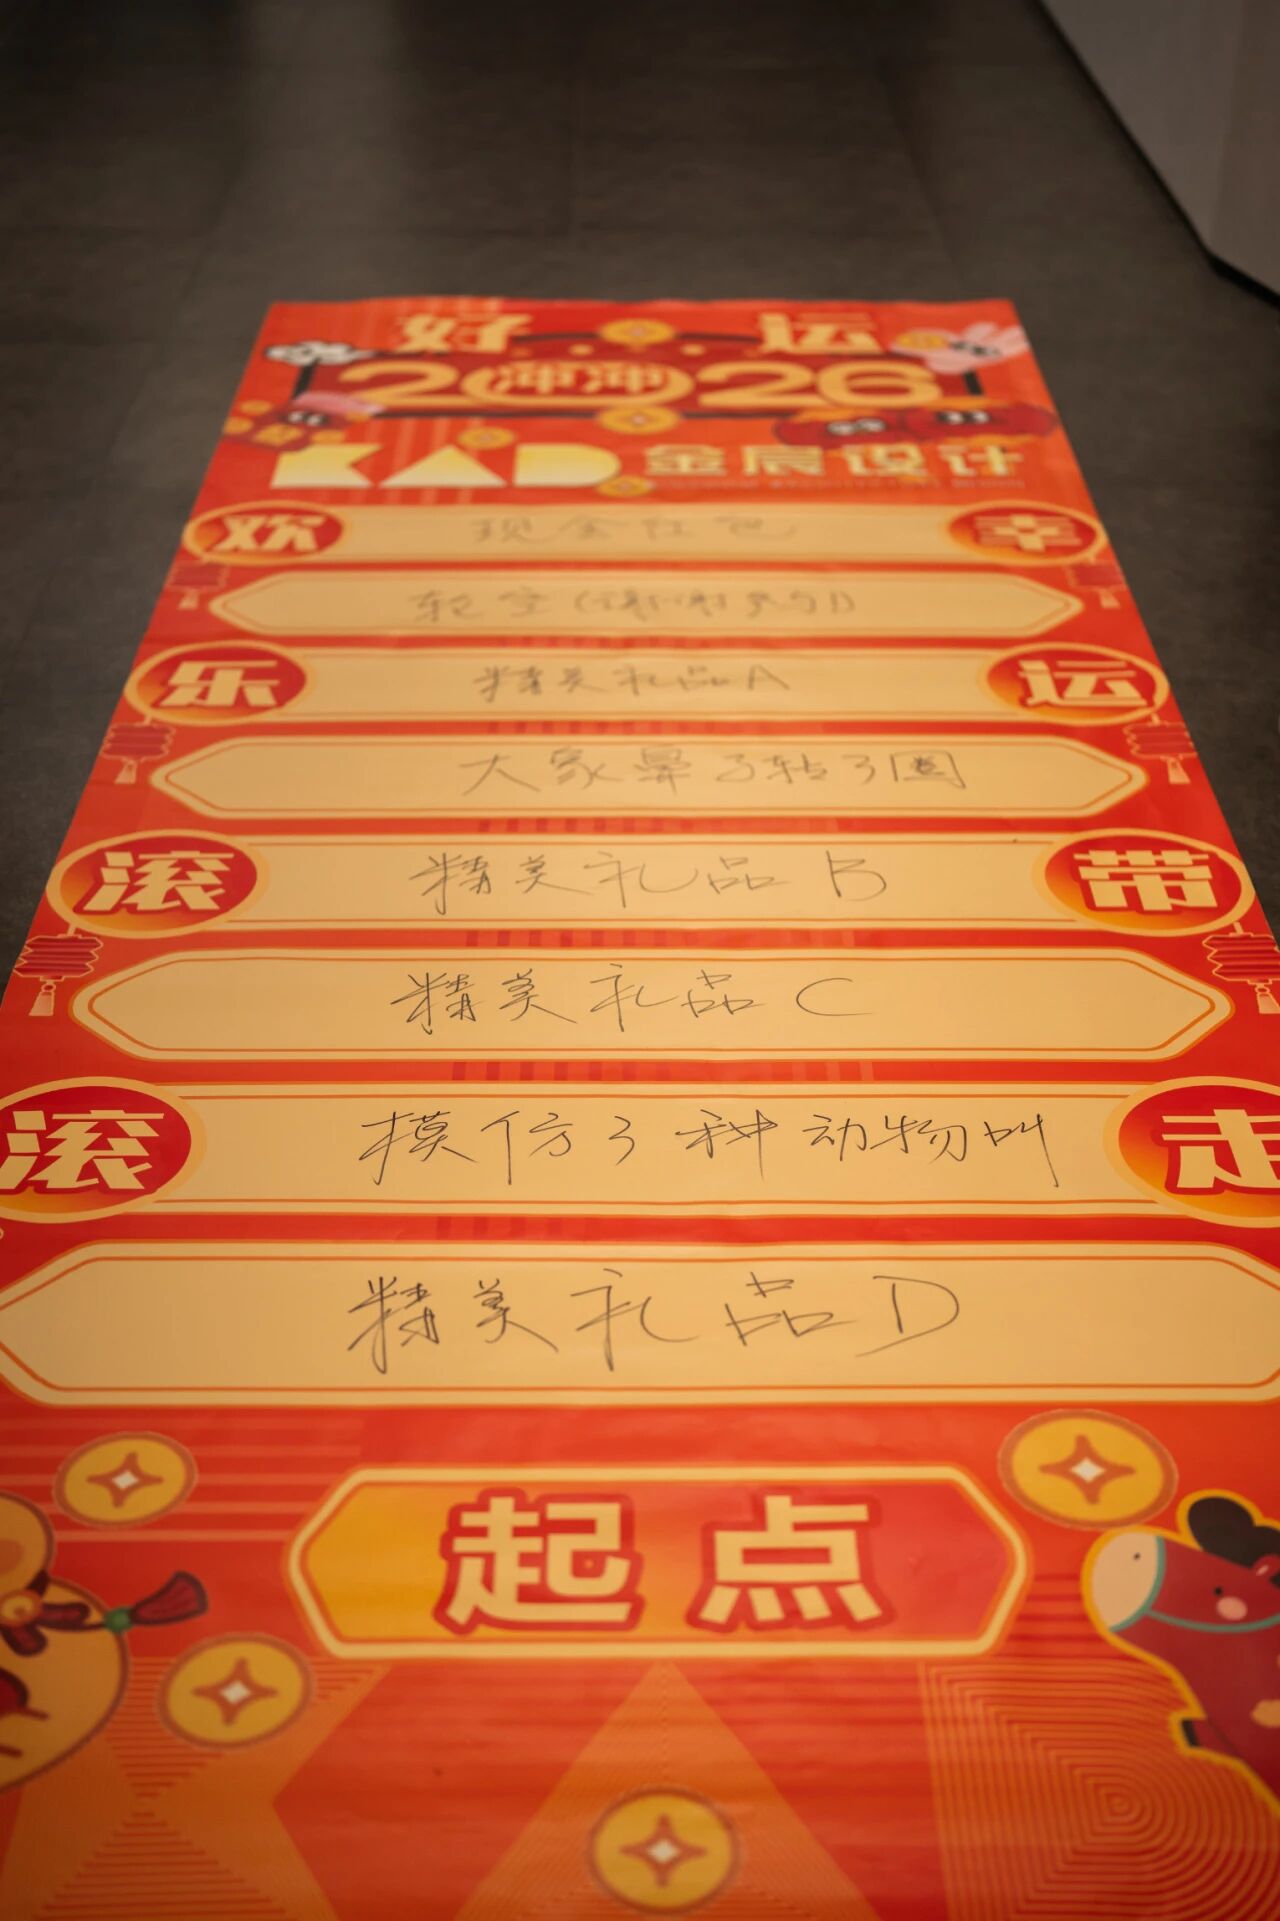 好运
2026
冲冲
KAD 金辰设计
欢 现金红包 幸
轮空(谢谢参与)
乐 精美礼品A 运
大象鼻子转3圈
滚 精美礼品 B 带
精美礼品 C
滚 模仿3种动物叫 走
精美礼品 D
起点